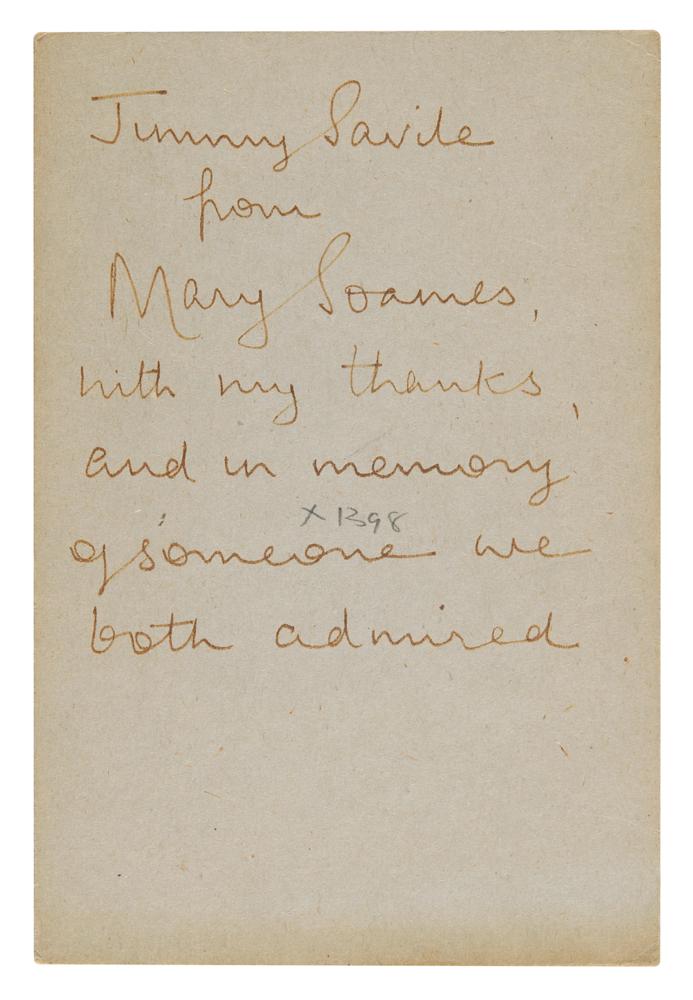 Jimmy Savile
from
Mary Soames,
with my thanks,
and in memory
x 1398
of someone we
both admired